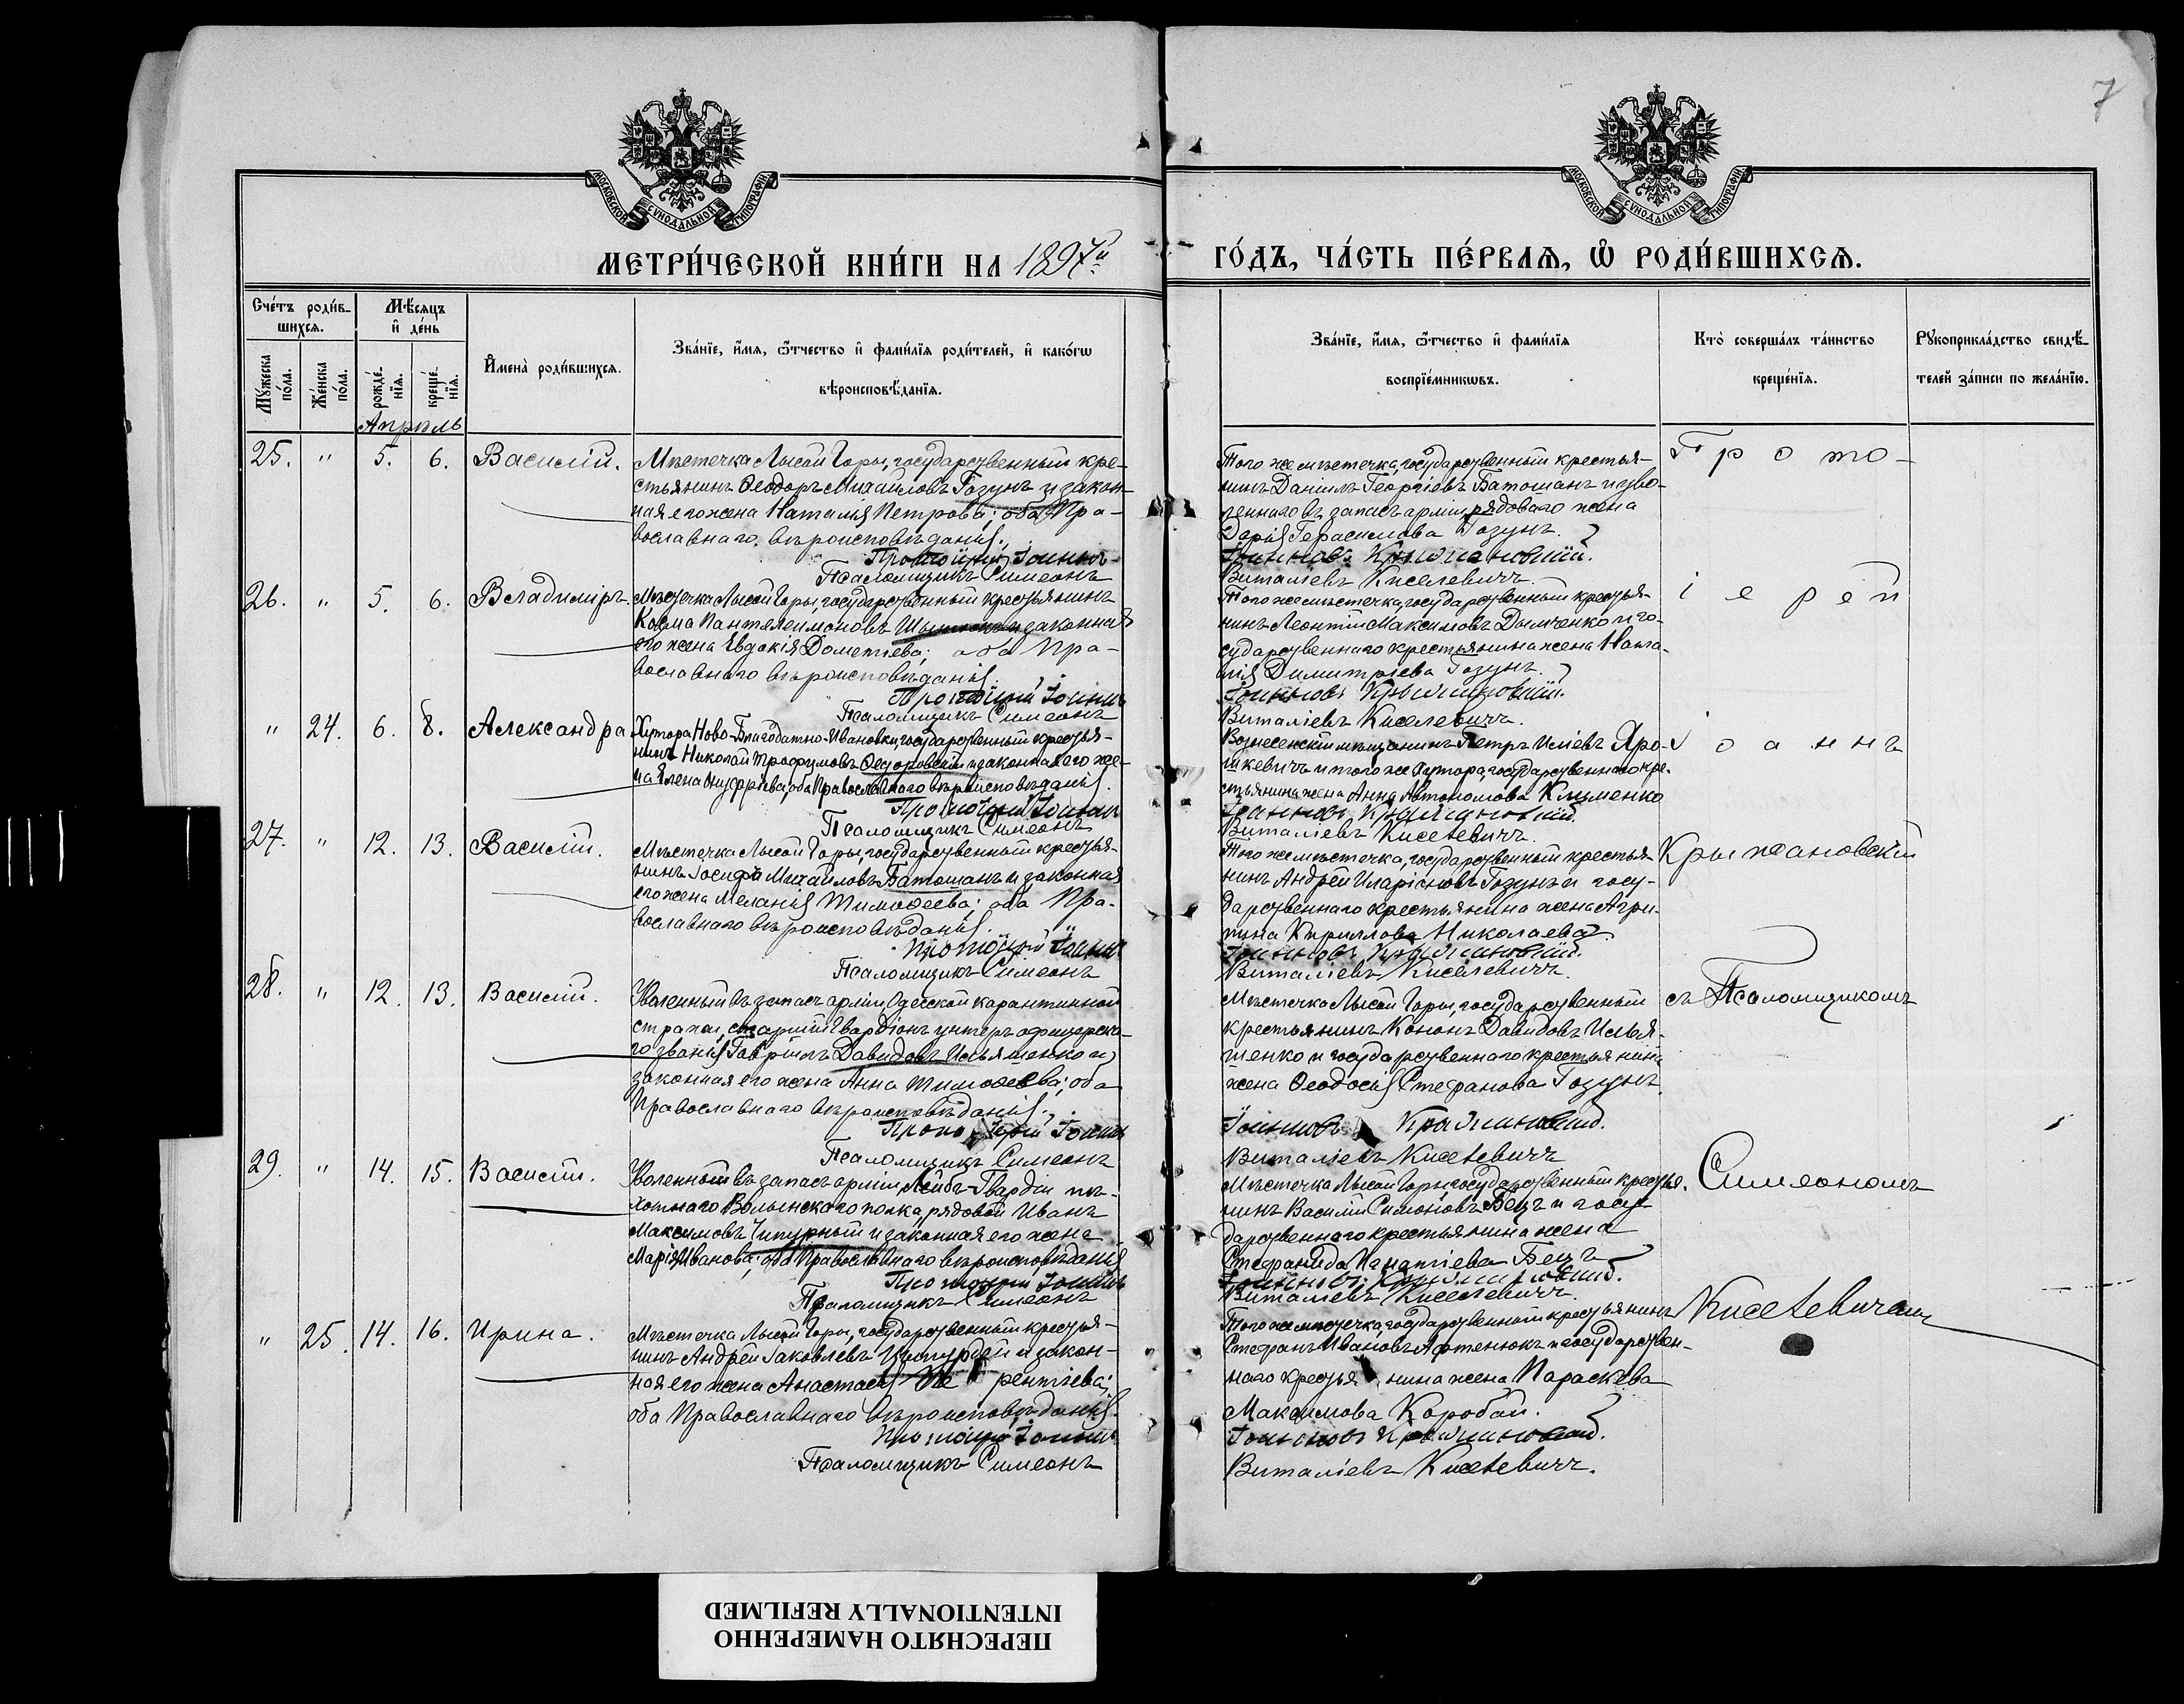 7
МОСКОВСКОЙ СѴНОДАЛЬНОЙ ТИПОГРАФІИ
МОСКОВСКОЙ СѴНОДАЛЬНОЙ ТИПОГРАФІИ
МЕТРИ́ЧЕСКОЙ КНИ́ГИ НА 1897й ГО́ДЪ, ЧА́СТЬ ПЕ́РВАѦ, Ѽ РОДИ́ВШИХСѦ.
Сче́тъ роди́в-
шихсѧ.
Мꙋ́жеска по́ла.
Же́нска по́ла.
Мѣ́сѧцъ
и҆ де́нь
рожде́-
нїѧ.
креще́-
нїѧ.
И҆мена̀ роди́вшихсѧ.
Зва́нїе, и҆́мѧ, ѻ҆́тчество и҆ фами́лїѧ роди́телей, и҆ како́гѡ
вѣроисповѣ́данїѧ.
Зва́нїе, и҆́мѧ, ѻ҆́тчество и҆ фами́лїѧ
воспрїе́мникѡвъ.
Кто̀ соверша́лъ та́инство
креще́нїѧ.
Рꙋкоприкла́дство свидѣ́-
телей за́писи по жела́нїю.
Апрѣль
25. " 5. 6. Василій.
Мѣстечка Лысой Горы, государственный кре-
стьянинъ Ѳеодоръ Михайловъ Гозунъ и закон-
ная его жена Наталья Петрова; оба Пра-
вославнаго вѣроисповѣданія.
Протоіерей Іоаннъ
Псаломщикъ Симеонъ
Того же мѣстечка, государственный крестья-
нинъ Даніилъ Георгіевъ Батошанъ и уво-
леннаго въ запасъ арміи рядового жена
Дарія Герасимова Гозунъ.
Іоанновъ Крыжановскій.
Виталіевъ Киселевичъ.
26. " 5. 6. Владиміръ.
Мѣстечка Лысой Горы, государственный крестьянинъ
Косма Пантелеимоновъ и законная
его жена Евдокія Дометіева; оба Пра-
вославнаго вѣроисповѣданія.
Протоіерей Іоаннъ
Псаломщикъ Симеонъ
Того же мѣстечка, государственный крестья-
нинъ Леонтій Максимовъ Дымченко и го-
сударственнаго крестьянина жена Ната-
лія Димитріева Гозунъ.
Іоанновъ Крыжановскій.
Виталіевъ Киселевичъ.
" 24. 6. 8. Александра
Хутора Ново-Благодатно-Ивановки, государственный крестья-
нинъ Николай Трофимовъ Ѳедоровскій и законная его же-
на Елена Онуфріева; оба Православнаго вѣроисповѣданія.
Протоіерей Іоаннъ
Псаломщикъ Симеонъ
Вознесенскій мѣщанинъ Петръ Иліевъ Яро-
шкевичъ и того же хутора, государственнаго кре-
стьянина жена Анна Автономова Клименко
Іоанновъ Крыжановскій.
Виталіевъ Киселевичъ.
27. " 12. 13. Василій.
Мѣстечка Лысой Горы, государственный крестья-
нинъ Іосифъ Михайловъ Батошанъ и законная
его жена Меланія Тимоѳеева; оба Пра-
вославнаго вѣроисповѣданія.
Протоіерей Іоаннъ
Псаломщикъ Симеонъ
Того же мѣстечка, государственный крестья-
нинъ Андрей Иларіоновъ Гозунъ и госу-
дарственнаго крестьянина жена Агри-
пина Кириллова Николаева.
Іоанновъ Крыжановскій.
Виталіевъ Киселевичъ.
28. " 12. 13. Василій.
Уволенный въ запасъ арміи Одесской карантинной
стражи, старшій гвардіонъ унтеръ офицерска-
го званія Гавріилъ Давидовъ Ильяшенко и
законная его жена Анна Тимоѳеева; оба
Православнаго вѣроисповѣданія.
Протоіерей Іоаннъ
Псаломщикъ Симеонъ
Мѣстечка Лысой Горы, государственный
крестьянинъ Кононъ Давидовъ Илья-
шенко и государственнаго крестьянина
жена Ѳеодосія Стефанова Гозунъ.
Іоанновъ Крыжановскій.
Виталіевъ Киселевичъ
29. " 14. 15. Василій.
Уволенный въ запасъ арміи Лейбъ-Гвардіи пѣ-
хотнаго Волынскаго полка, рядовой Иванъ
Максимовъ Чипурный и законная его жена
Марія Иванова; оба Православнаго вѣроисповѣданія
Протоіерей Іоаннъ
Псаломщикъ Симеонъ
Мѣстечка Лысой Горы, государственный крестья-
нинъ Василій Симоновъ Бецъ и госу-
дарственнаго крестьянина жена
Стефанида Игнатіева Бецъ
Іоанновъ Крыжановскій.
Виталіевъ Киселевичъ.
" 25. 14. 16. Ирина.
Мѣстечка Лысой Горы, государственный крестья-
нинъ Андрей Іаковлевъ и закон-
ная его жена Анастасія Терентіева;
оба Православнаго вѣроисповѣданія.
Протоіерей Іоаннъ
Псаломщикъ Симеонъ
Того же мѣстечка, государственный крестьянинъ
Стефанъ Ивановъ Афтенюкъ и государствен-
наго крестьянина жена Параскева
Максимова Коробай.
Іоанновъ Крыжановскій.
Виталіевъ Киселевичъ.
Прото-
іерей
Іоаннъ
Крыжановскій
съ Псаломщикомъ
Симеономъ
Киселевичемъ
ПЕРЕСНЯТО НАМЕРЕННО
INTENTIONALLY REFILMED